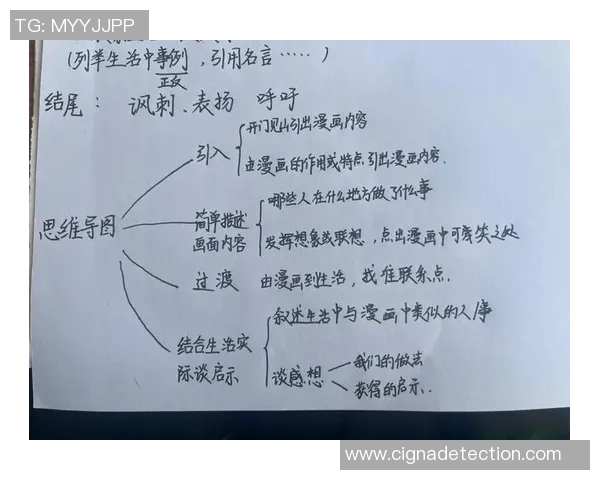 TG: MYYJJPP
(列举生活中事例,引用名言……)
正反
结尾: 讽刺、表扬 呼吁
思维导图
引入
开门见山引出漫画内容
由漫画的作用或特点引出漫画内容.
简单描述
画面内容
哪些人在什么地方做了什么事
发挥想象或联想,点出漫画中可笑之处
过渡 由漫画到生活,找准联系点.
结合生活实
际谈启示
叙述生活中与漫画中类似的人事
谈感想
我们的做法
获得的启示.
www.cignadetection.com